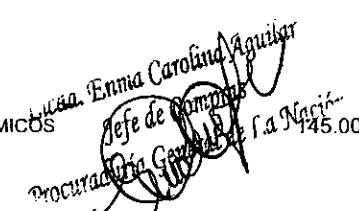 Licda. Enma Carolina Aguilar
MICOS Jefe de Compras
Procuraduría General de La Nación 145.00